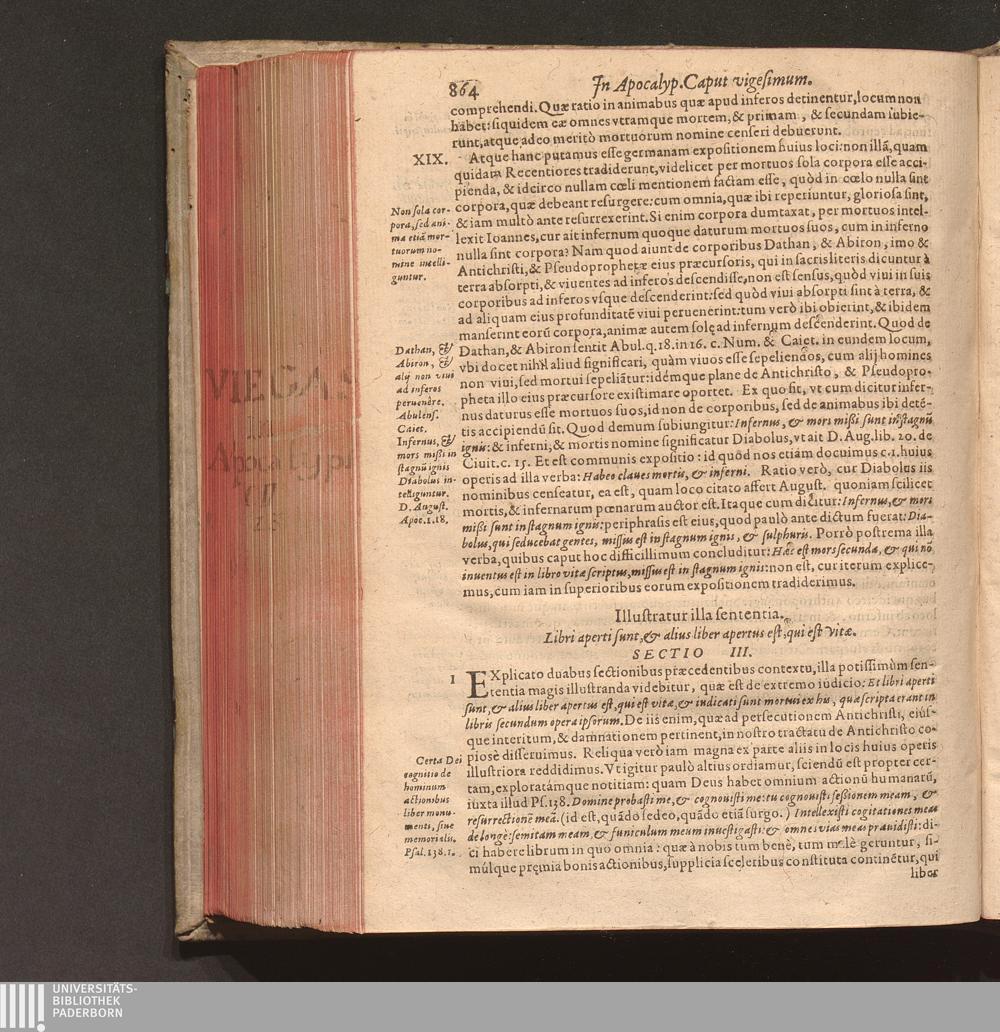 864 In Apocalyp. Caput vigesimum.
comprehendi. Quæ ratio in animabus quæ apud inferos detinentur, locum non
habet: siquidem eæ omnes vtramque mortem, & primam, & secundam subie-
runt, atque adeo meritò mortuorum nomine censeri debuerunt.
XIX. Atque hanc putamus esse germanam expositionem huius loci: non illã, quam
quidam Recentiores tradiderunt, videlicet per mortuos sola corpora esse acci-
pienda, & idcirco nullam cœli mentionem factam esse, quòd in cœlo nulla sint
corpora, quæ debeant resurgere: cum omnia, quæ ibi reperiuntur, gloriosa sint,
& iam multò ante resurrexerint. Si enim corpora dumtaxat, per mortuos intel-
lexit Ioannes, cur ait infernum quoque daturum mortuos suos, cum in inferno
nulla sint corpora? Nam quod aiunt de corporibus Dathan, & Abiron, imo &
Antichristi, & Pseudoprophetæ eius præcursoris, qui in sacris literis dicuntur à
terra absorpti, & viuentes ad inferos descendisse, non est sensus, quòd viui in suis
corporibus ad inferos vsque descenderint: sed quòd viui absorpti sint à terra, &
ad aliquam eius profunditatẽ viui peruenerint: tum verò ibi obierint, & ibidem
manserint eorũ corpora, animæ autem solę ad infernum descenderint. Quod de
Dathan, & Abiron sentit Abul. q. 18. in 16. c. Num. & Caiet. in eundem locum,
vbi docet nihil aliud significari, quàm viuos esse sepeliendos, cum alij homines
non viui, sed mortui sepeliãtur: idémque plane de Antichristo, & Pseudopro-
pheta illo eius præcursore existimare oportet. Ex quo fit, vt cum dicitur infer-
nus daturus esse mortuos suos, id non de corporibus, sed de animabus ibi detẽ-
tis accipiendũ sit. Quod demum subiungitur: Infernus, & mors missi sunt in stagnũ
ignis: & inferni, & mortis nomine significatur Diabolus, vt ait D. Aug. lib. 20. de
Ciuit. c. 15. Et est communis expositio: id quòd nos etiám docuimus c. 1. huius
operis ad illa verba: Habeo claues mortis, & inferni. Ratio verò, cur Diabolus iis
nominibus censeatur, ea est, quam loco citato affert August. quoniam scilicet
mortis, & infernarum pœnarum auctor est. Itaque cum dicitur: Infernus, & mors
missi sunt in stagnum ignis: periphrasis est eius, quod paulò ante dictum fuerat: Dia-
bolus, qui seducebat gentes, missus est in stagnum ignis, & sulphuris. Porrò postrema illa
verba, quibus caput hoc difficillimum concluditur: Hæc est mors secunda, & qui nõ
inuentus est in libro vitæ scriptus, missus est in stagnum ignis: non est, cur iterum explice-
mus, cum iam in superioribus eorum expositionem tradiderimus.
Non sola cor-
pora, sed ani-
ma etiã mor-
tuorum no-
mine intelli-
guntur.
Dathan, &
Abiron, &
alij non viui
ad inferos
peruenêre.
Abulens.
Caiet.
Infernus, &
mors missi in
stagnũ ignis
Diabolus in-
telliguntur.
D. August.
Apoc. 1. 18.
Illustratur illa sententia.
Libri aperti sunt, & alius liber apertus est, qui est vitæ.
SECTIO III.
1 EXplicato duabus sectionibus præcedentibus contextu, illa potissimùm sen-
tentia magis illustranda videbitur, quæ est de extremo iudicio: Et libri aperti
sunt, & alius liber apertus est, qui est vitæ, & iudicati sunt mortui ex his, quæ scripta erant in
libris secundum opera ipsorum. De iis enim, quæ ad persecutionem Antichristi, eiús-
que interitum, & damnationem pertinent, in nostro tractatu de Antichristo co-
piosè disseruimus. Reliqua verò iam magna ex parte aliis in locis huius operis
illustriora reddidimus. Vt igitur paulò altius ordiamur, sciendũ est propter cer-
tam, exploratámque notitiam: quam Deus habet omnium actionũ humanarũ,
iuxta illud Ps. 138. Domine probasti me, & cognouisti me: tu cognouisti sessionem meam, &
resurrectionẽ meã. (id est, quãdo sedeo, quãdo etiã surgo.) Intellexisti cogitationes meas
de longè: semitam meam, & funiculum meum inuestigasti: & omnes vias meas præuidisti: di-
ci habere librum in quo omnia: quæ à nobis tum benè, tum malè geruntur, si-
múlque pręmia bonis actionibus, supplicia sceleribus constituta continẽtur, qui
liber
Certa Dei
cognitio de
hominum
actionibus
liber monu-
menti, siue
memorialis.
Psal. 138. 1.
VIEGAS
in
Apocalypsi
UNIVERSITÄTS-
BIBLIOTHEK
PADERBORN